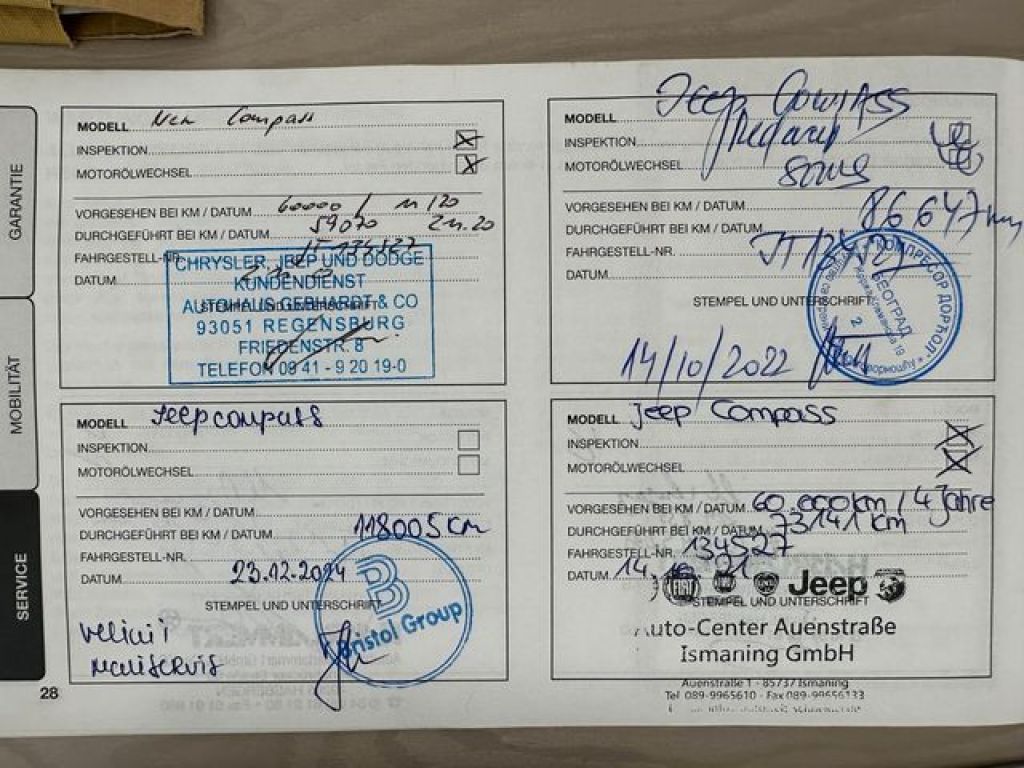 GARANTIE
MOBILITÄT
SERVICE
MODELL Compass
INSPEKTION
MOTORÖLWECHSEL
VORGESEHEN BEI KM / DATUM 60000 / 11/20
DURCHGEFÜHRT BEI KM / DATUM 59070 2.11.20
FAHRGESTELL-NR. JT134527
DATUM
STEMPEL UND UNTERSCHRIFT
CHRYSLER, JEEP UND DODGE
KUNDENDIENST
AUTOHAUS GEBHARDT & CO
93051 REGENSBURG
FRIEDENSTR. 8
TELEFON 09 41 - 9 20 19-0
MODELL Jeep Compass
INSPEKTION
MOTORÖLWECHSEL
VORGESEHEN BEI KM / DATUM
DURCHGEFÜHRT BEI KM / DATUM 86647 km
FAHRGESTELL-NR.
DATUM
STEMPEL UND UNTERSCHRIFT
КОМПРЕСОР ДОРЋОЛ
БЕОГРАД
2
14/10/2022
MODELL Jeep compass
INSPEKTION
MOTORÖLWECHSEL
VORGESEHEN BEI KM / DATUM
DURCHGEFÜHRT BEI KM / DATUM 118005 km
FAHRGESTELL-NR.
DATUM 23.12.2024
STEMPEL UND UNTERSCHRIFT
B
Bristol Group
velini i
mali servis
MODELL Jeep Compass
INSPEKTION
MOTORÖLWECHSEL
VORGESEHEN BEI KM / DATUM 60.000km / 4 Jahre
DURCHGEFÜHRT BEI KM / DATUM 73141 km
FAHRGESTELL-NR. 134527
DATUM
FIAT Jeep
STEMPEL UND UNTERSCHRIFT
Auto-Center Auenstraße
Ismaning GmbH
Auenstraße 1 - 85737 Ismaning
Tel 089-9965610 - Fax 089-99656133
28